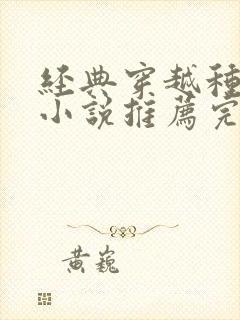 經典穿越種
小說推薦完
黃巍